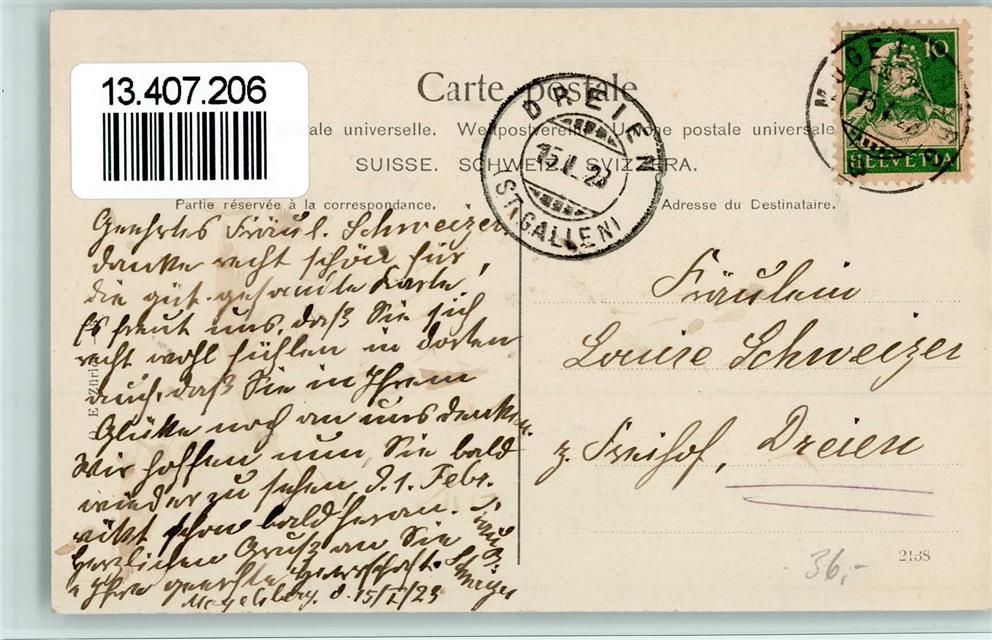 13.407.206
Carte postale
ale universelle. Weltpostverein. Union postale universale
SUISSE. SCHWEIZ. SVIZZERA.
Partie réservée à la correspondance.
Adresse du Destinataire.
10
HELVETIA
DREIEN
15.I.23
(ST. GALLEN)
Geehrtes Fräul. Schweizer
danke recht schön für
die gut gesandte Karte,
Es freut uns, daß Sie sich
recht wohl fühlen in dorten
auch, daß Sie in Ihrem
Glükke noch an uns denken.
Wir hoffen nun Sie bald
wieder zu sehen d. 1. Febr.
rükt schon bald heran.
Herzlichen Gruß an Sie
u Ihre geehrte Herrschaft.
Mogelsberg. d. 15/I/23
Fräulein
Louise Schweizer
z. Freihof, Dreien
E. Züri
36,-
2138